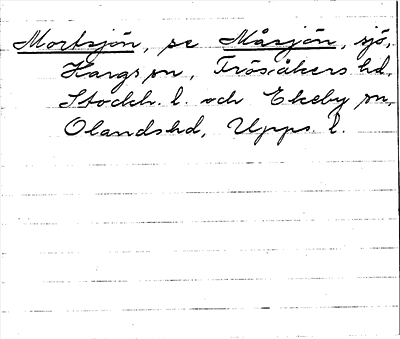 Mortsjön, se Måsjön, sjö,
Hargs sn, Frösåkers hd,
Stockh. l. och Ekeby sn,
Olandshd, Upps. l.